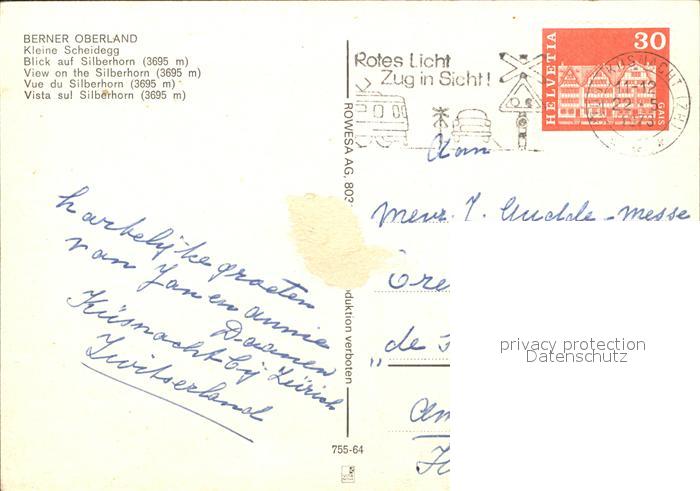 BERNER OBERLAND
Kleine Scheidegg
Blick auf Silberhorn (3695 m)
View on the Silberhorn (3695 m)
Vue du Silberhorn (3695 m)
Vista sul Silberhorn (3695 m)
Rotes Licht
Zug in Sicht!
HELVETIA
30
GAIS
ROWESA AG, 803
duktion verboten
Aan
Mevr. J. -Messe
Ore
"de
Am
hartelijke groeten
van Jan en Annie
Daanen
Küsnacht bij Zürich
Zwitserland
755-64
privacy protection
Datenschutz